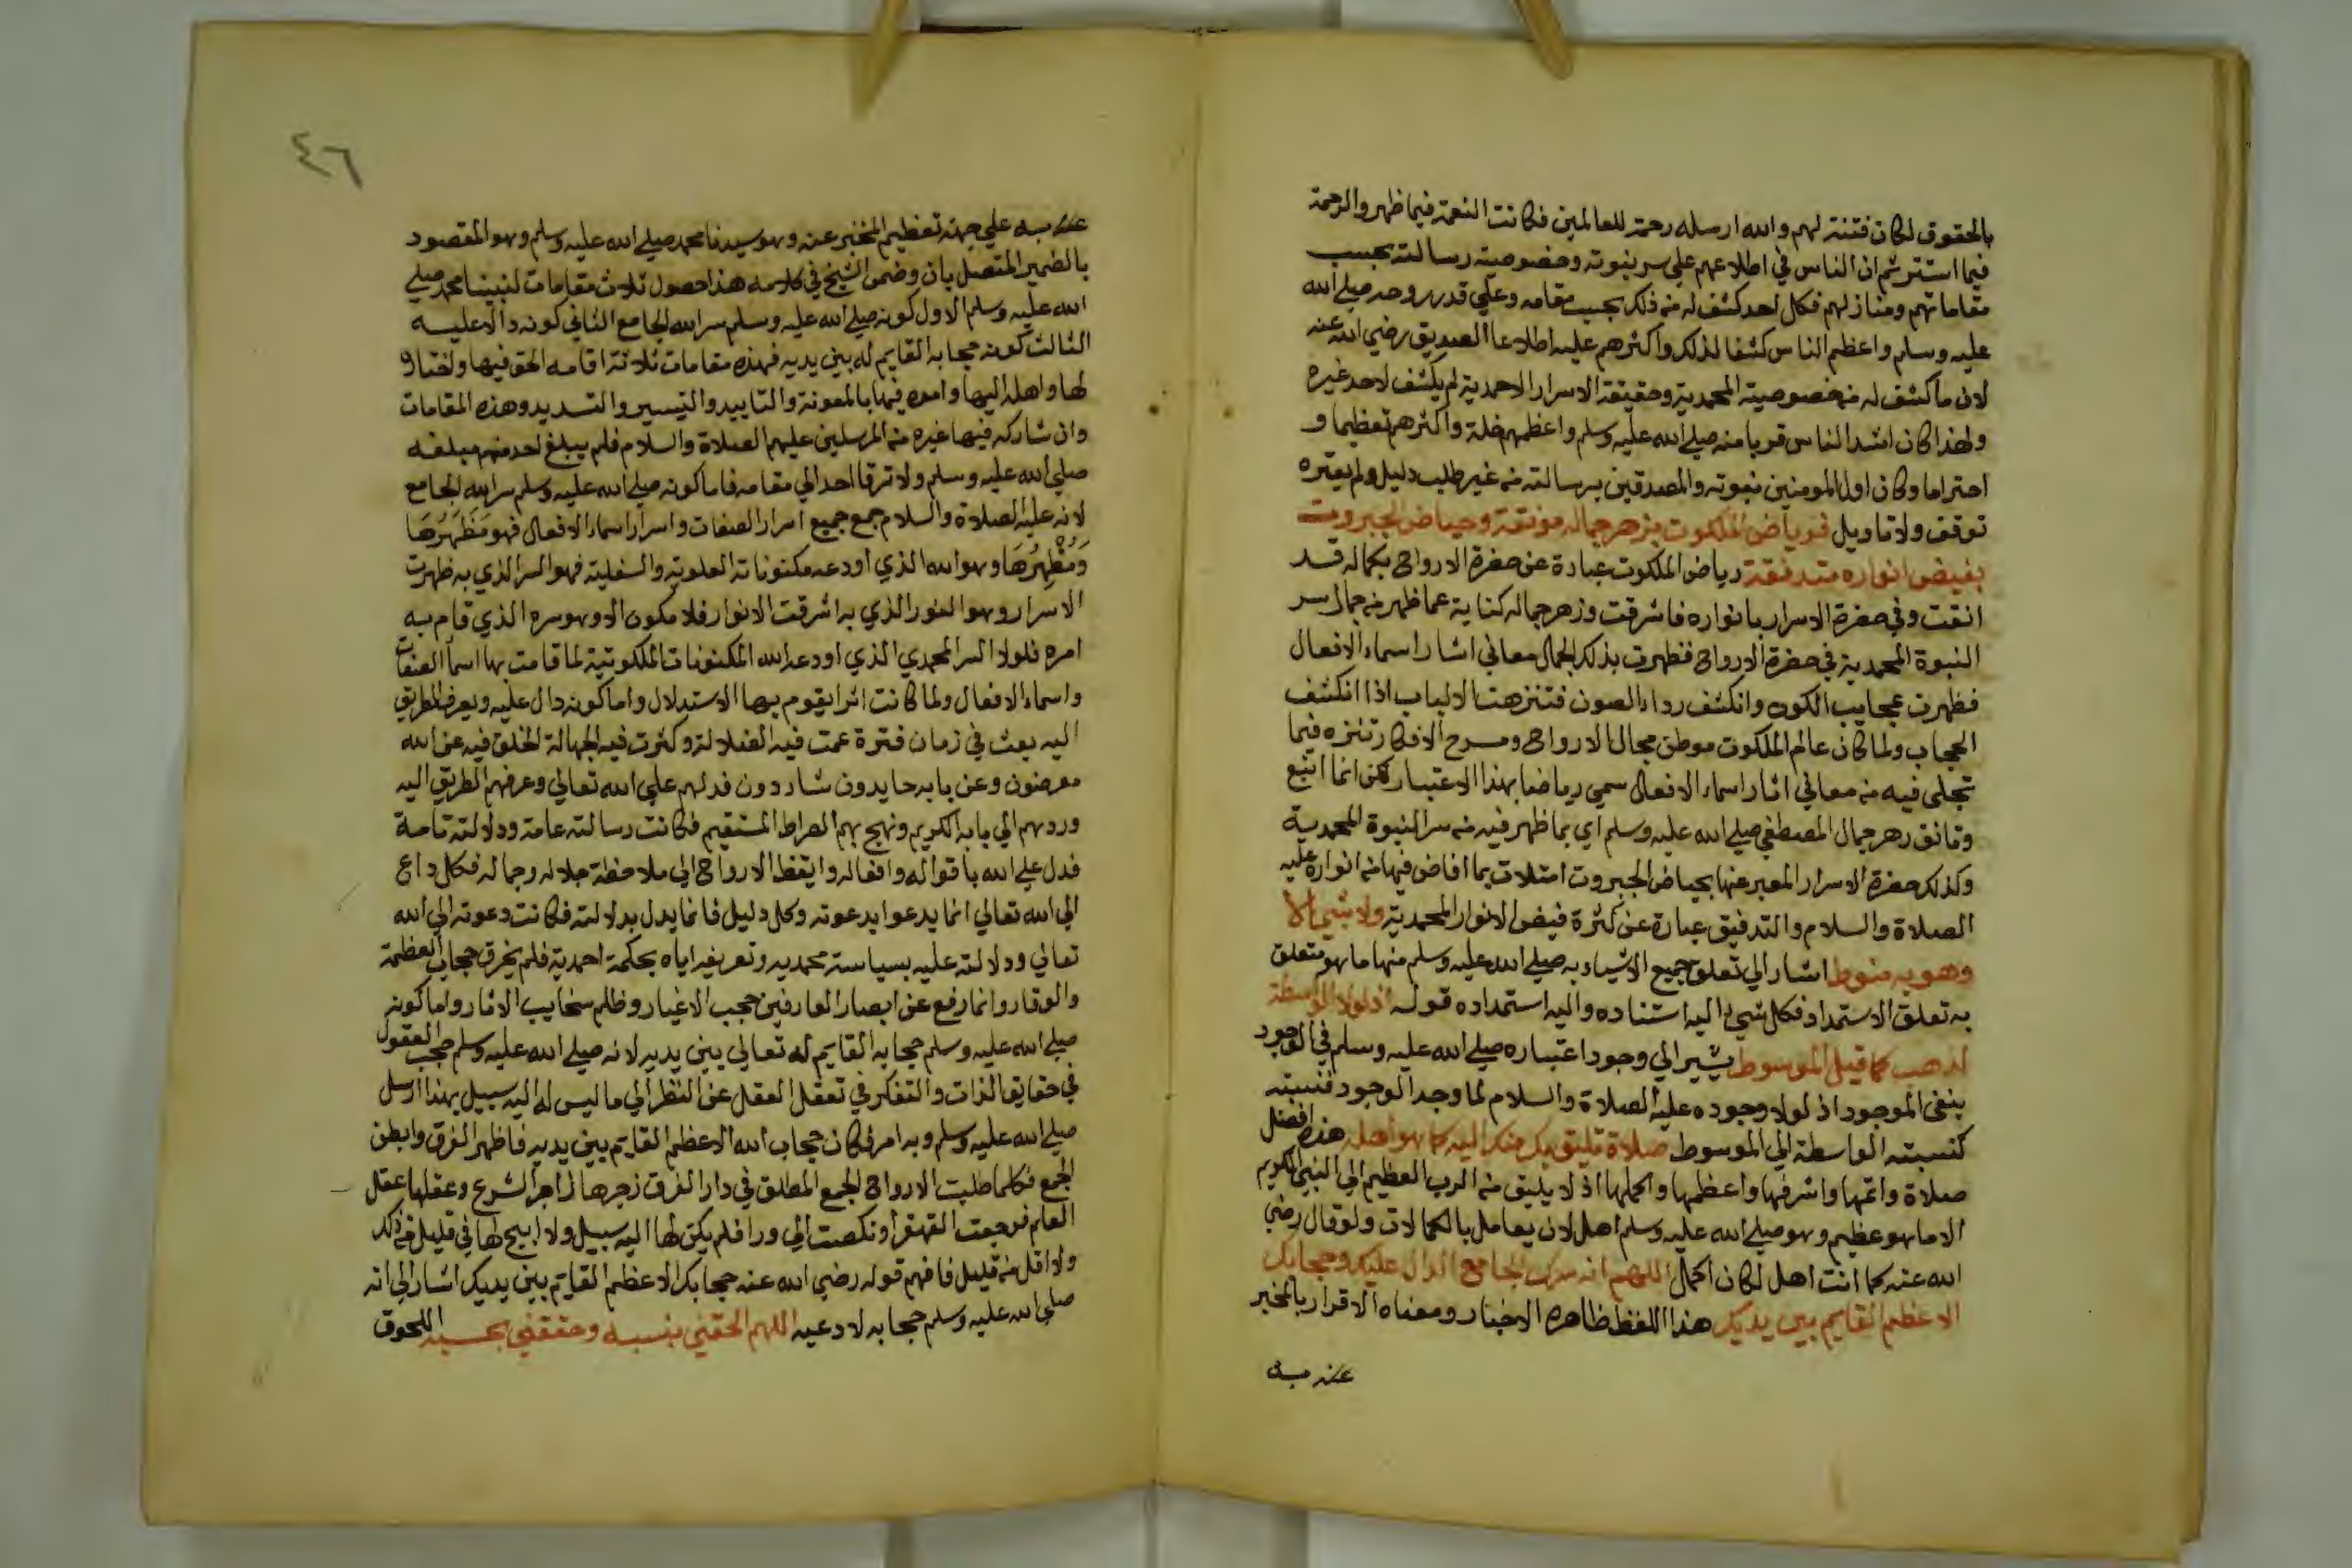 بالحقوق لكان فتنة لهم والله ارسله رحمة للعالمين فكانت النعمة فيما ظهر والرحمة
فيما استتر ثم ان الناس في اطلاعهم علي سر نبوته وخصوصية رسالته بحسب
مقاماتهم ومنازلهم فكل احد كشف له من ذلك بحسب مقامه وعلي قدر روحه صلي الله
عليه وسلم واعظم الناس كشفا لذلك واكثرهم عليه اطلاعا الصديق رضي الله عنه
لان ما كشف له من خصوصية المحمدية وحقيقة الاسرار الاحمدية لم يكشف لاحد غيره
ولهذا كان اشد الناس قربا منه صلي الله عليه وسلم واعظمهم خلة واكثرهم تعظيما و
احتراما وكان اول المومنين بنبوته والمصدقين برسالته من غير طلب دليل ولم يعتره
توقف ولا تاويل فرياض الملكوت بزهر جماله مونقة وحياض الجبروت
بفيض انواره متدفقة رياض الملكوت عبارة عن حضرة الارواح بكماله قد
انقت وفي حضرة الاسرار بانواره فاشرقت وزهر جماله كناية عما ظهر من جمال سر
النبوة المحمدية في حضرة الارواح فظهرت بذلك الجمال معاني اشار اسماء الافعال
فظهرت عجايب الكون وانكشف رداء الصون فتنزهت الالباب اذا انكشف
الحجاب ولما كان عالم الملكوت موطن مجال الارواح ومسرح الافكار تتنزه فيما
تجلى فيه من معاني اثار اسماء الافعال سمي رياضا بهذا الاعتبار لكن انما اتبع
وتانق زهر جمال المصطفي صلي الله عليه وسلم اي بما ظهر فيه من سر النبوة المحمدية
وكذلك حضرة الاسرار المعبر عنها بحياض الجبروت امتلات بما افاض فيها من انواره عليه
الصلاة والسلام والتدفيق عبارة عن كثرة فيض الانوار المحمدية ولا شي الا
وهو به منوط اشار الي تعلق جميع الاشياء به صلي الله عليه وسلم منها ما هو متعلق
به تعلق الاستمداد فكل شي اليه استناده واليه استمداده قوله اذ لولا الواسطة
لذهب كما قيل الموسوط يشير الي وجود اعتباره صلي الله عليه وسلم في الوجود
ينفي الموجود اذ لولا وجوده عليه الصلاة والسلام لما وجد الوجود فنسبته
كنسبته الواسطة الي الموسوط صلاة تليق بك منك اليه كما هو اهله هذه افضل
صلاة واتمها واشرفها واعظمها واكملها اذ لا يليق من الرب العظيم الي النبي الكريم
الا ما هو عظيم وهو صلي الله عليه وسلم اهل لان يعامل بالكمالات ولو قال رضي
الله عنه كما انت اهل لكان اكمل اللهم انه سرك الجامع الدال عليك وحجابك
الاعظم القايم بين يديك هذا اللفظ ظاهره الاخبار ومعناه الاقرار بالمخبر
عنه به
٤٦
عنه به علي جهة تعظيم المخبر عنه وهو سيدنا محمد صلي الله عليه وسلم وهو المقصود
بالضمير المتصل بان وضمن الشيخ في كلامه هذا حصول ثلاث مقامات لنبينا محمد صلي
الله عليه وسلم الاول كونه صلي الله عليه وسلم سر الله الجامع الثاني كونه دالا عليه
الثالث كونه حجابه القايم له بين يديه فهذه مقامات ثلاثة اقامه الحق فيها واختاره
لها واهله اليها وامده فيها بالمعونة والتاييد والتيسير والتسديد وهذه المقامات
وان شاركه فيها غيره من المرسلين عليهم الصلاة والسلام فلم يبلغ احد منهم مبلغه
صلي الله عليه وسلم ولا ترقا احد الي مقامه فاما كونه صلي الله عليه وسلم سر الله الجامع
لانه عليه الصلاة والسلام جمع جميع اسرار الصفات واسرار اسماء الافعال فهو مَظهَرُهَا
وَمُظْهِرُهَا وهو الله الذي اودعه مكنوناته العلوية والسفلية فهو السر الذي به ظهرت
الاسرار وهو النور الذي به اشرقت الانوار فلا مكون الا وهو سره الذي قام به
امره فلولا السر المحمدي الذي اودعه الله المكنونات الملكوتية لما قامت بها اسما الصفات
واسماء الافعال ولما كانت اثرا يقوم بها الاستدلال واما كونه دال عليه ويعرف الطريق
اليه بعث في زمان فترة عمت فيه الضلالة وكثرت فيه الجهالة الخلق فيه عن الله
معرضون وعن بابه حايدون شاردون فدلهم علي الله تعالي وعرفهم الطريق اليه
وردهم الي بابه الكريم ونهج بهم الصراط المستقيم فكانت رسالته عامة ودلالته تامة
فدل علي الله باقواله وافعاله وايقظ الارواح الي ملاحظة جلاله وجماله فكل داع
الي الله تعالي انما يدعوا بدعوته وكل دليل فانما يدل بدلالته فكانت دعوته الي الله
تعالي ودلالته عليه بسياسة محمدية وتعريفه اياه بحكمة احمدية فلم يخرق حجاب العظمة
والوقار وانما رفع عن ابصار العارفين حجب الاغيار وظلم سحايب الاثار واما كونه
صلي الله عليه وسلم حجابه القايم له تعالي بين يديه لانه صلي الله عليه وسلم حجب العقول
في حقايق الذات والتفكر في تعقل العقل عن النظر الي ما ليس له اليه سبيل بهذا ارسل
صلي الله عليه وسلم وبه امر فكان حجاب الله الاعظم القايم بين يديه فاظهر الفرق وابطن
الجمع فكلما طلبت الارواح الجمع المطلق في دار الفرق زجرها زاجر الشرع وعقلها عقل
العلم فرجعت القهقرا ونكصت الي ورا فلم يكن لها اليه سبيل ولا ابيح لها في قليل من ذلك
ولا اقل من قليل فافهم قوله رضي الله عنه حجابك الاعظم القايم بين يديك اشار الي انه
صلي الله عليه وسلم حجابه لا دعيه اللهم الحقني بنسبه وحققني بحسبه اللحوق